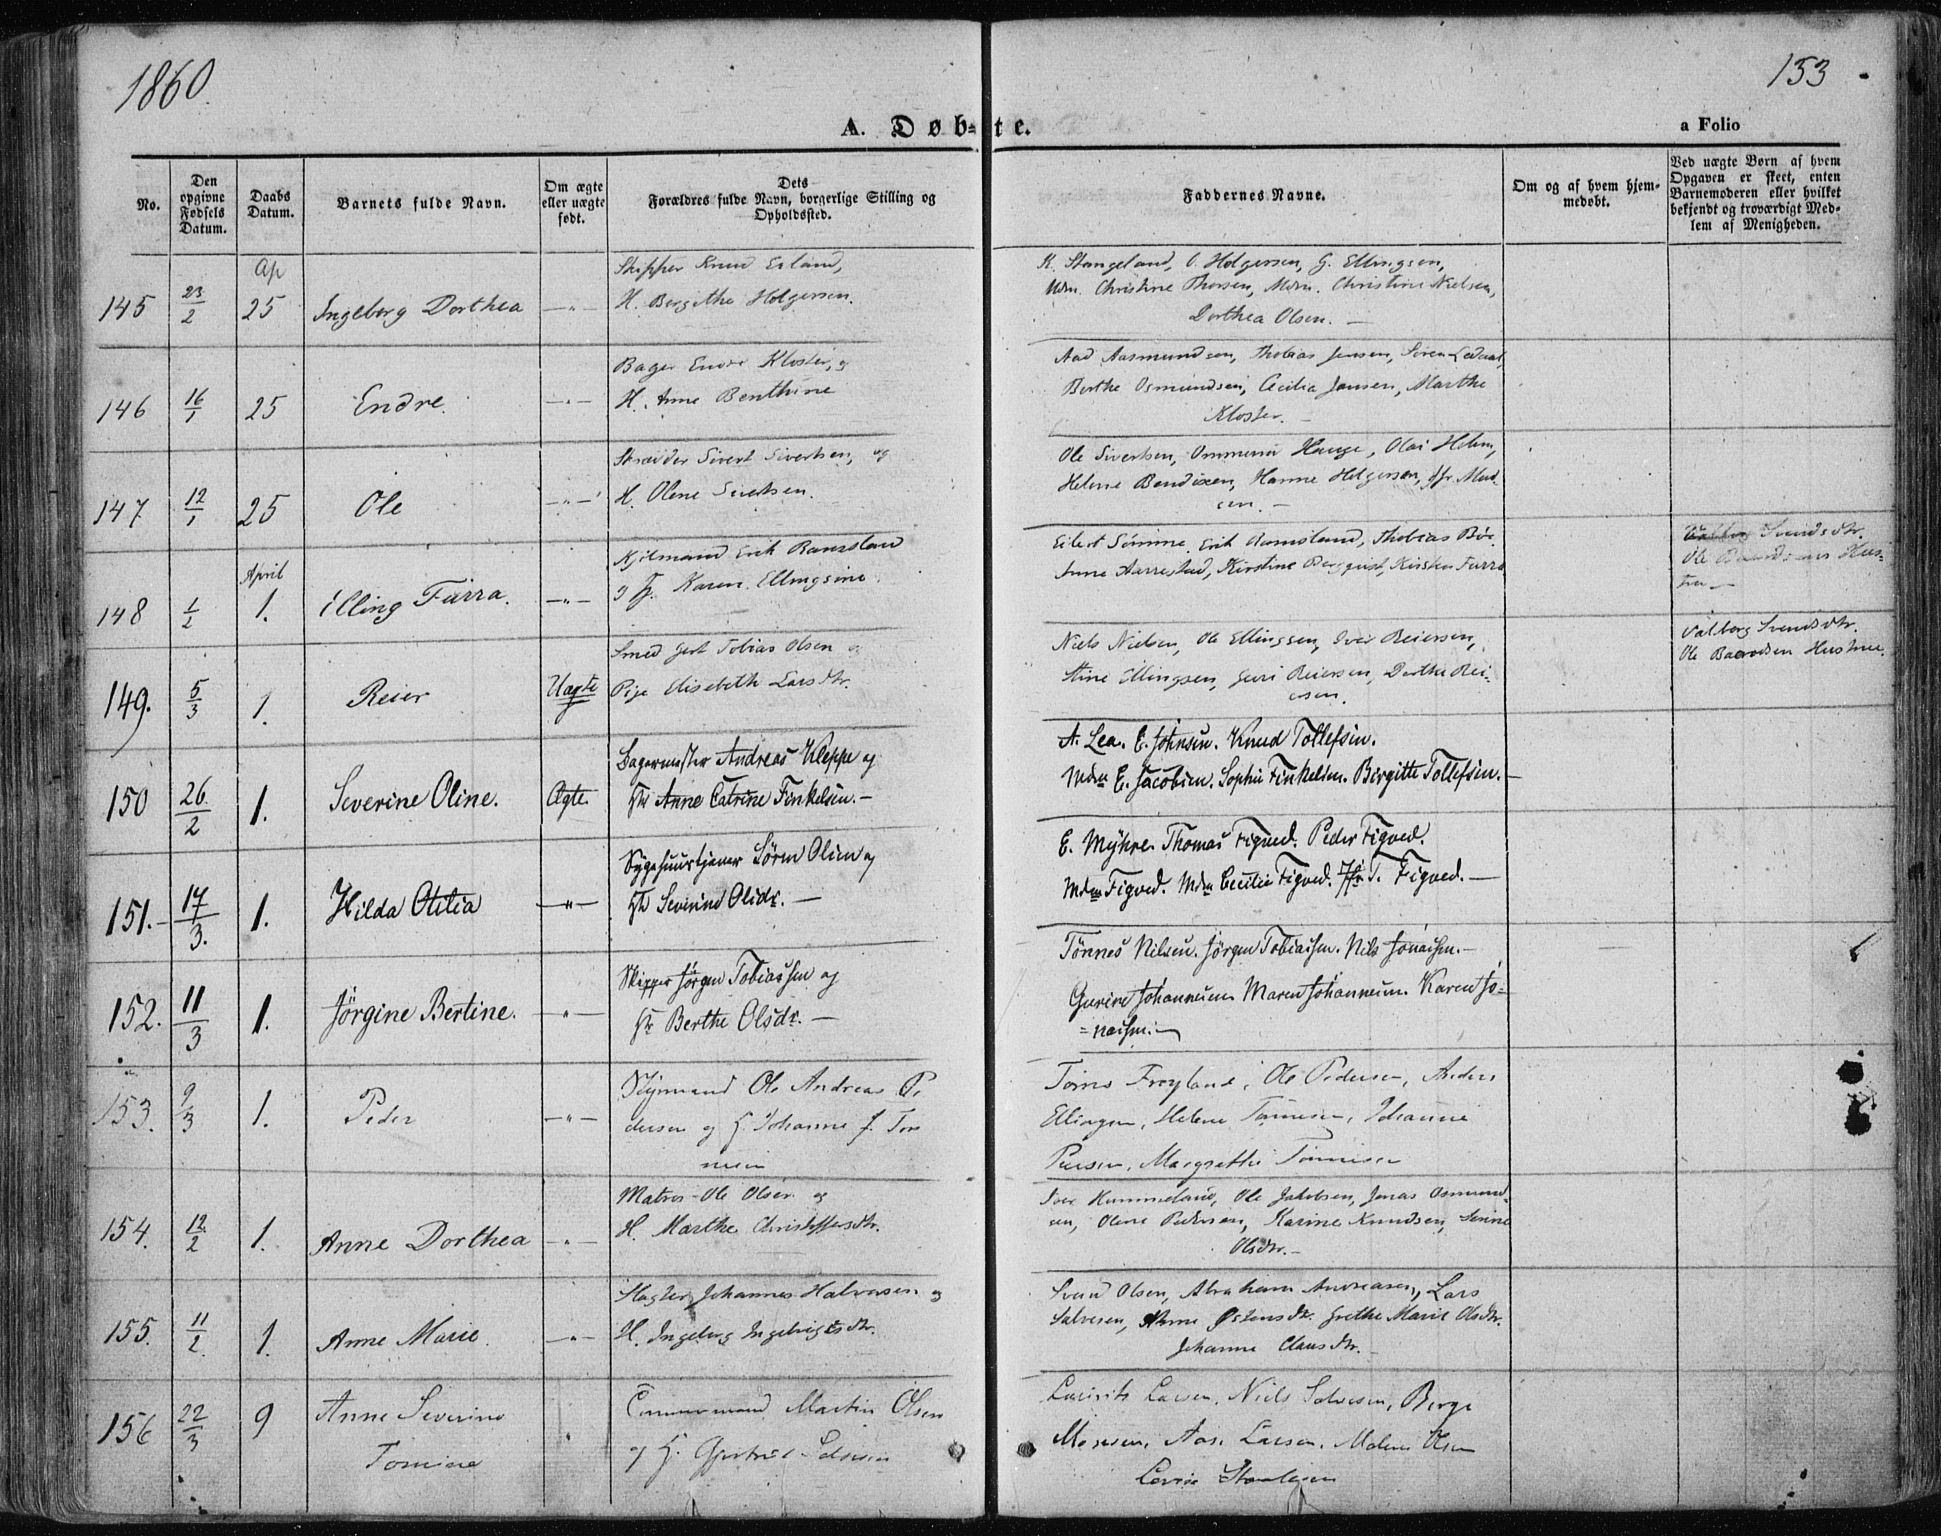 1860.
153
A. Døb-te.
a Folio
No.
Den opgivne Fødsels Datum.
Daabs Datum.
Barnets fulde Navn.
Om ægte eller uægte født.
Dets Forældres fulde Navn, borgerlige Stilling og Opholdssted.
Faddernes Navne.
Om og af hvem hjemmedøbt.
Ved uægte Børn af hvem Opgaven er skeet, enten Barnemoderen eller hvilket bekjendt og troværdigt Medlem af Menigheden.
Ap
145 23/2 25 Ingeborg Dorthea —"—
Skipper Knud Erland,
H. Bergithe Holgersen.
K. Stangeland, O. Holgersen, G. Ellingsen,
Mdm. Christine Thorsen, Mdm. Christine Nielsen,
Dorthea Olsen. —
146 16/1 25 Endre. —"—
Bager Endre Kloster, og
H. Anne Benthine
Aad Aasmundsen, Thobias Jensen, Søren Ledaal,
Berthe Osmundsen, Cecilia Jansen, Marthe
Kloster. —
147 12/1 25 Ole —"—
Skrædder Sivert Sivertsen, og
H. Olene Sivertsen.
Ole Sivertsen, Ommund Hauge, Olai Helm,
Helene Bendixen, Hanne Holgersen, Jfr. Mad-
sen. —
April
148 1/2 1. Elling Furra. —"—
Erik Ramsland
og H. Karen Ellingsine
Eilert Sømme. Erik Ramsland, Thobias Bøe.
Anne Aarrestad, Kirstine Bergquist, Kirsten Furra
Svendsdtr.
Ole Hus-
tru —
149. 5/3 1. Reier Uægte
Smed Tobias Olsen og
Pige Elisebeth Larsdtr.
Niels Nielsen, Ole Ellingsen, Iver Reiersen,
Stine Ellingsen, Guri Reiersen, Dorthe Rei-
ersen.
Valborg Svendsdtr.
Ole Baardsen Hustrue.
150 26/2 1. Severine Oline. Ægte.
Bagermester Andreas Kleppe og
H. Anne Catrine Finkelsen. —
A. Lea. E. Johnsen. Knud Tollefsen.
Mdm E. Jacobsen. Sophie Finkelsen. Birgitte Tollefsen. —
151.- 17/3. 1. Hilda Otilia —"—
Sygehuustjener Søren Olsen og
H. Severine Olsdr. —
E. Myhre. Thomas Figved. Peder Figved.
Mdm Figved. Mdm Cecilie Figved. Jfr T. Figved. —
152. 11/3 1. Jörgine Bertine. —"—
Skipper Jörgen Tobiassen og
H. Berthe Olsdr. —
Tönnes Nilsen. Jörgen Tobiassen. Nils Jonassen. —
Gurine Johannesen. Maren Johannesen. Karen Jo=
=nassen. —
153. 9/3 1. Peder —"—
Ole Andreas Pe
dersen og H. Johanne f. Ton
nesen
Frøyland, Ole Pedersen, Anders
Ellingsen, Helene Tønnesen, Johanne
Margrethe Tønnesen
154. 12/2 1. Anne Dorthea —"—
Matros Ole Olsen og
H. Marthe Christoffersdtr.
Iver Hummeland, Ole Jakobsen, Jonas Osmund-
sen, Olene Pedersen, Karine Knudsen, Serine
Olsdtr. —
155. 11/2. 1. Anne Marie. —"—
Slagter Johannes Halvorsen og
H. Ingeborg Ingebrigtsdtr.
Svend Olsen, Abraham Andreasen, Lars
Salvesen, Anne Østensdtr. Grethe Marie Olsdtr.
Johanne Clausdtr. —
156 22/3 9 Anne Severine
Tomine
Martin Olsen
og H. Gjertrud
Lauritz Larsen, Niels Salvesen, Berge
Mosesen, Aase Larsen, Malene Olsen